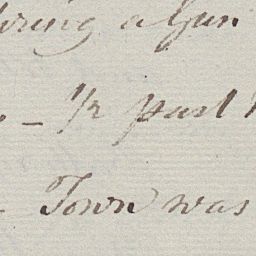 firing a Gun
- 1/2 past
- Town was